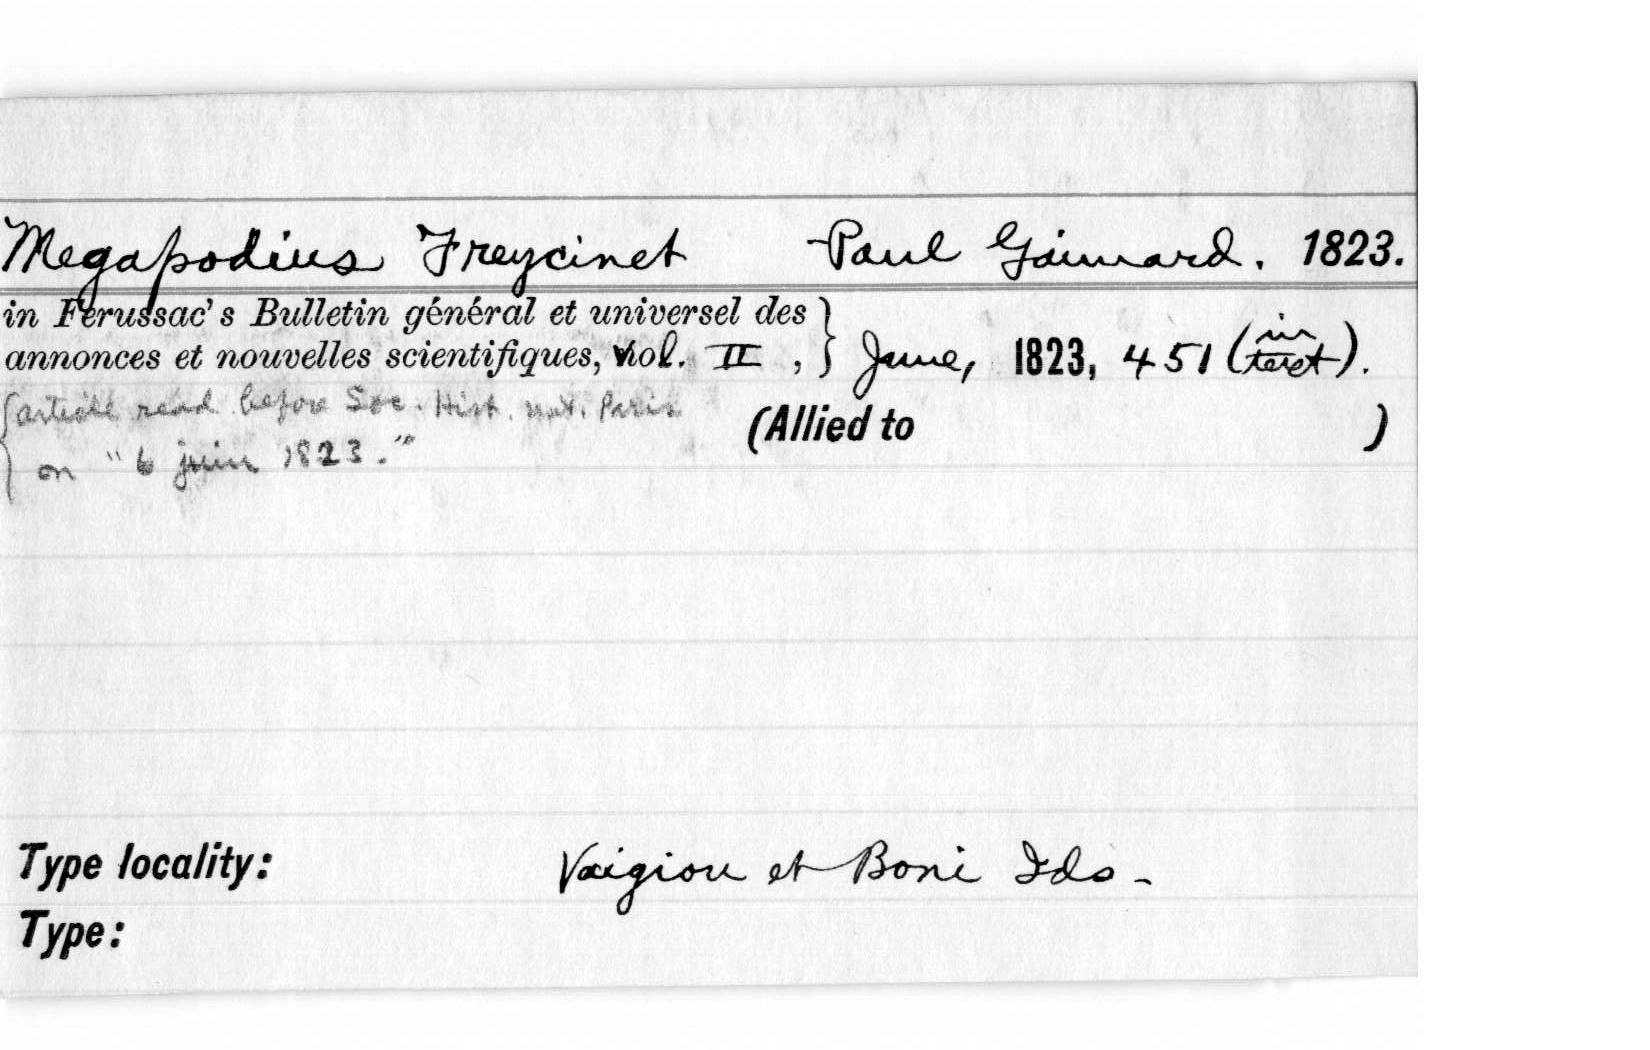 Megapodius Freycinet Paul Gaimard. 1823.
in Ferussac's Bulletin général et universel des
annonces et nouvelles scientifiques, vol. II, } June, 1823, 451 (in text).
{article read before Soc. Hist. nat. Paris
on "6 juin 1823."
(Allied to )
Type locality: Vaigiou et Boni Ids -
Type: